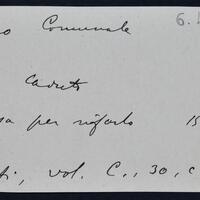 o Comunale 6.
Caduti
sa per rifarlo 15
ti, vol. C., 30, c